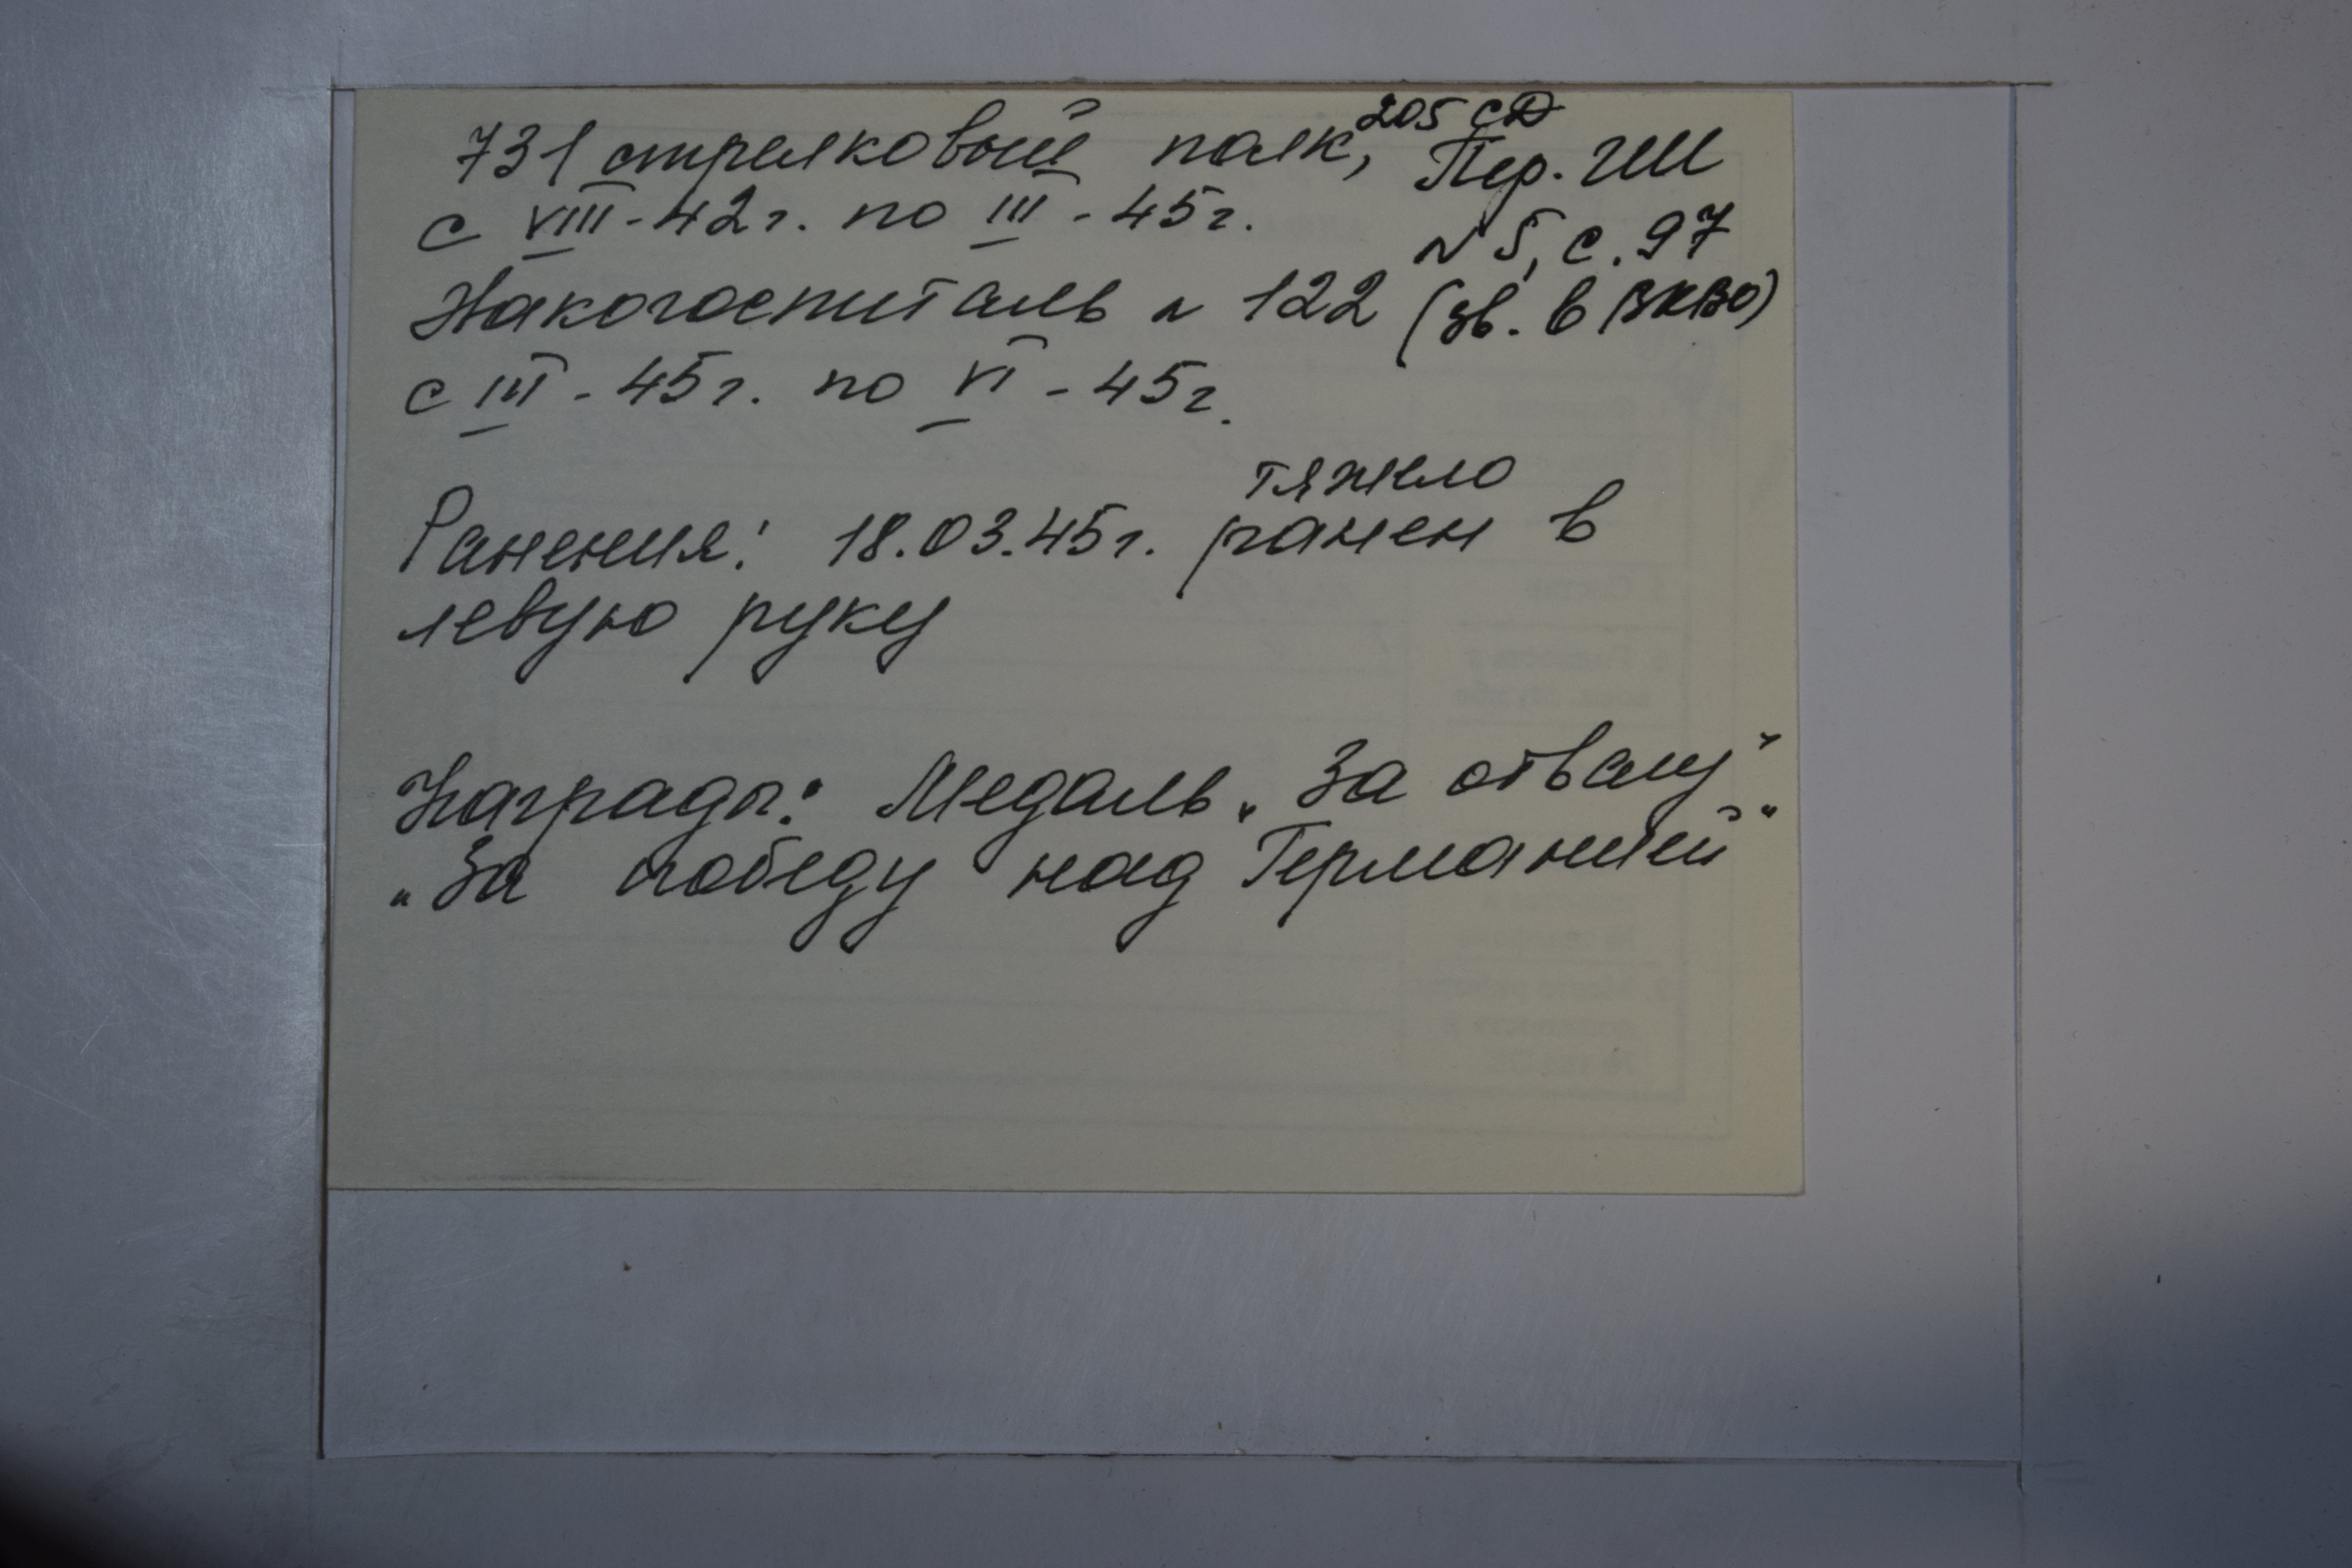 731 стрелковый полк, 205 СД
Пер. ГШ
с VIII-42г. по III-45г.
N 5, с. 97
Накогоспиталь N 122 (эв. в ЗКВО)
с III-45г. по VI-45г.
тяжело
Ранения: 18.03.45г. ранен в
левую руку
Награды: Медаль „За отвагу"
„За победу над Германией"